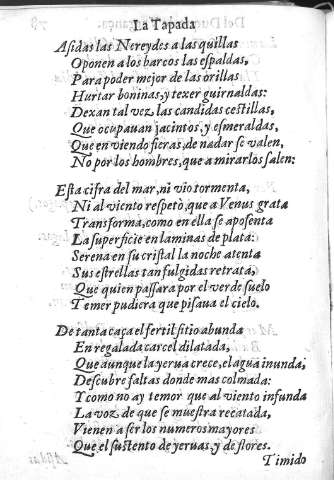 La Tapada
Asidas las Nereydes a las quillas
Oponen a los barcos las espaldas,
Para poder mejor de las orillas
Hurtar boninas, y texer guirnaldas:
Dexan tal vez las candidas cestillas,
Que ocupauan jacintos, y esmeraldas,
Que en viendo fieras, de nadar se valen,
No por los hombres, que a mirarlos salen:
Esta cifra del mar, ni vio tormenta,
Ni al viento respetò, que a Venus grata
Transforma, como en ella se aposenta
La superficie en laminas de plata:
Serena en su cristal la noche atenta
Sus estrellas tan fulgidas retrata,
Que quien passara por el verde suelo
Temer pudiera que pisaua el cielo.
De tanta caça el fertil sitio abunda
En regalada carcel dilatada,
Que aunque la yerua crece, el agua inunda,
Descubre faltas donde mas colmada:
Y como no ay temor que al viento infunda
La voz de que se muestra recatada,
Vienen a ser los numeros mayores
Que el sustento de yeruas, y de flores.
Timido